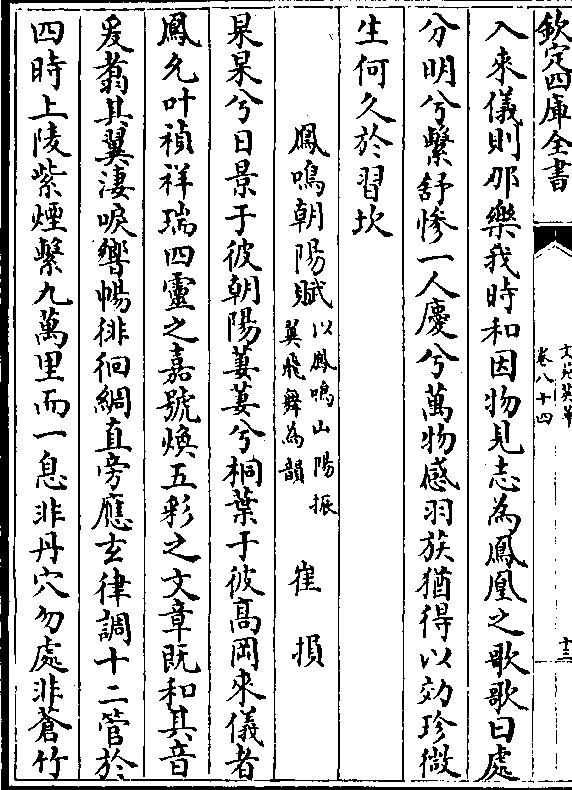 欽定四庫全書
文苑英華
卷八十四
十三
入來儀則那樂我時和因物見志為鳳凰之歌歌曰處
分明兮繫舒慘一人慶兮萬物感羽族猶得以効珍微
生何久於習坎
鳳鳴朝陽賦以鳳鳴山陽振
翼飛舞為韻 崔損
杲杲兮日景于彼朝陽萋萋兮桐葉于彼高岡來儀者
鳳允叶禎祥瑞四靈之嘉號煥五彩之文章既和其音
爰翥其翼淒唳響暢徘徊綢直旁應玄律調十二管於
四時上陵紫煙繫九萬里而一息非丹穴勿處非蒼竹